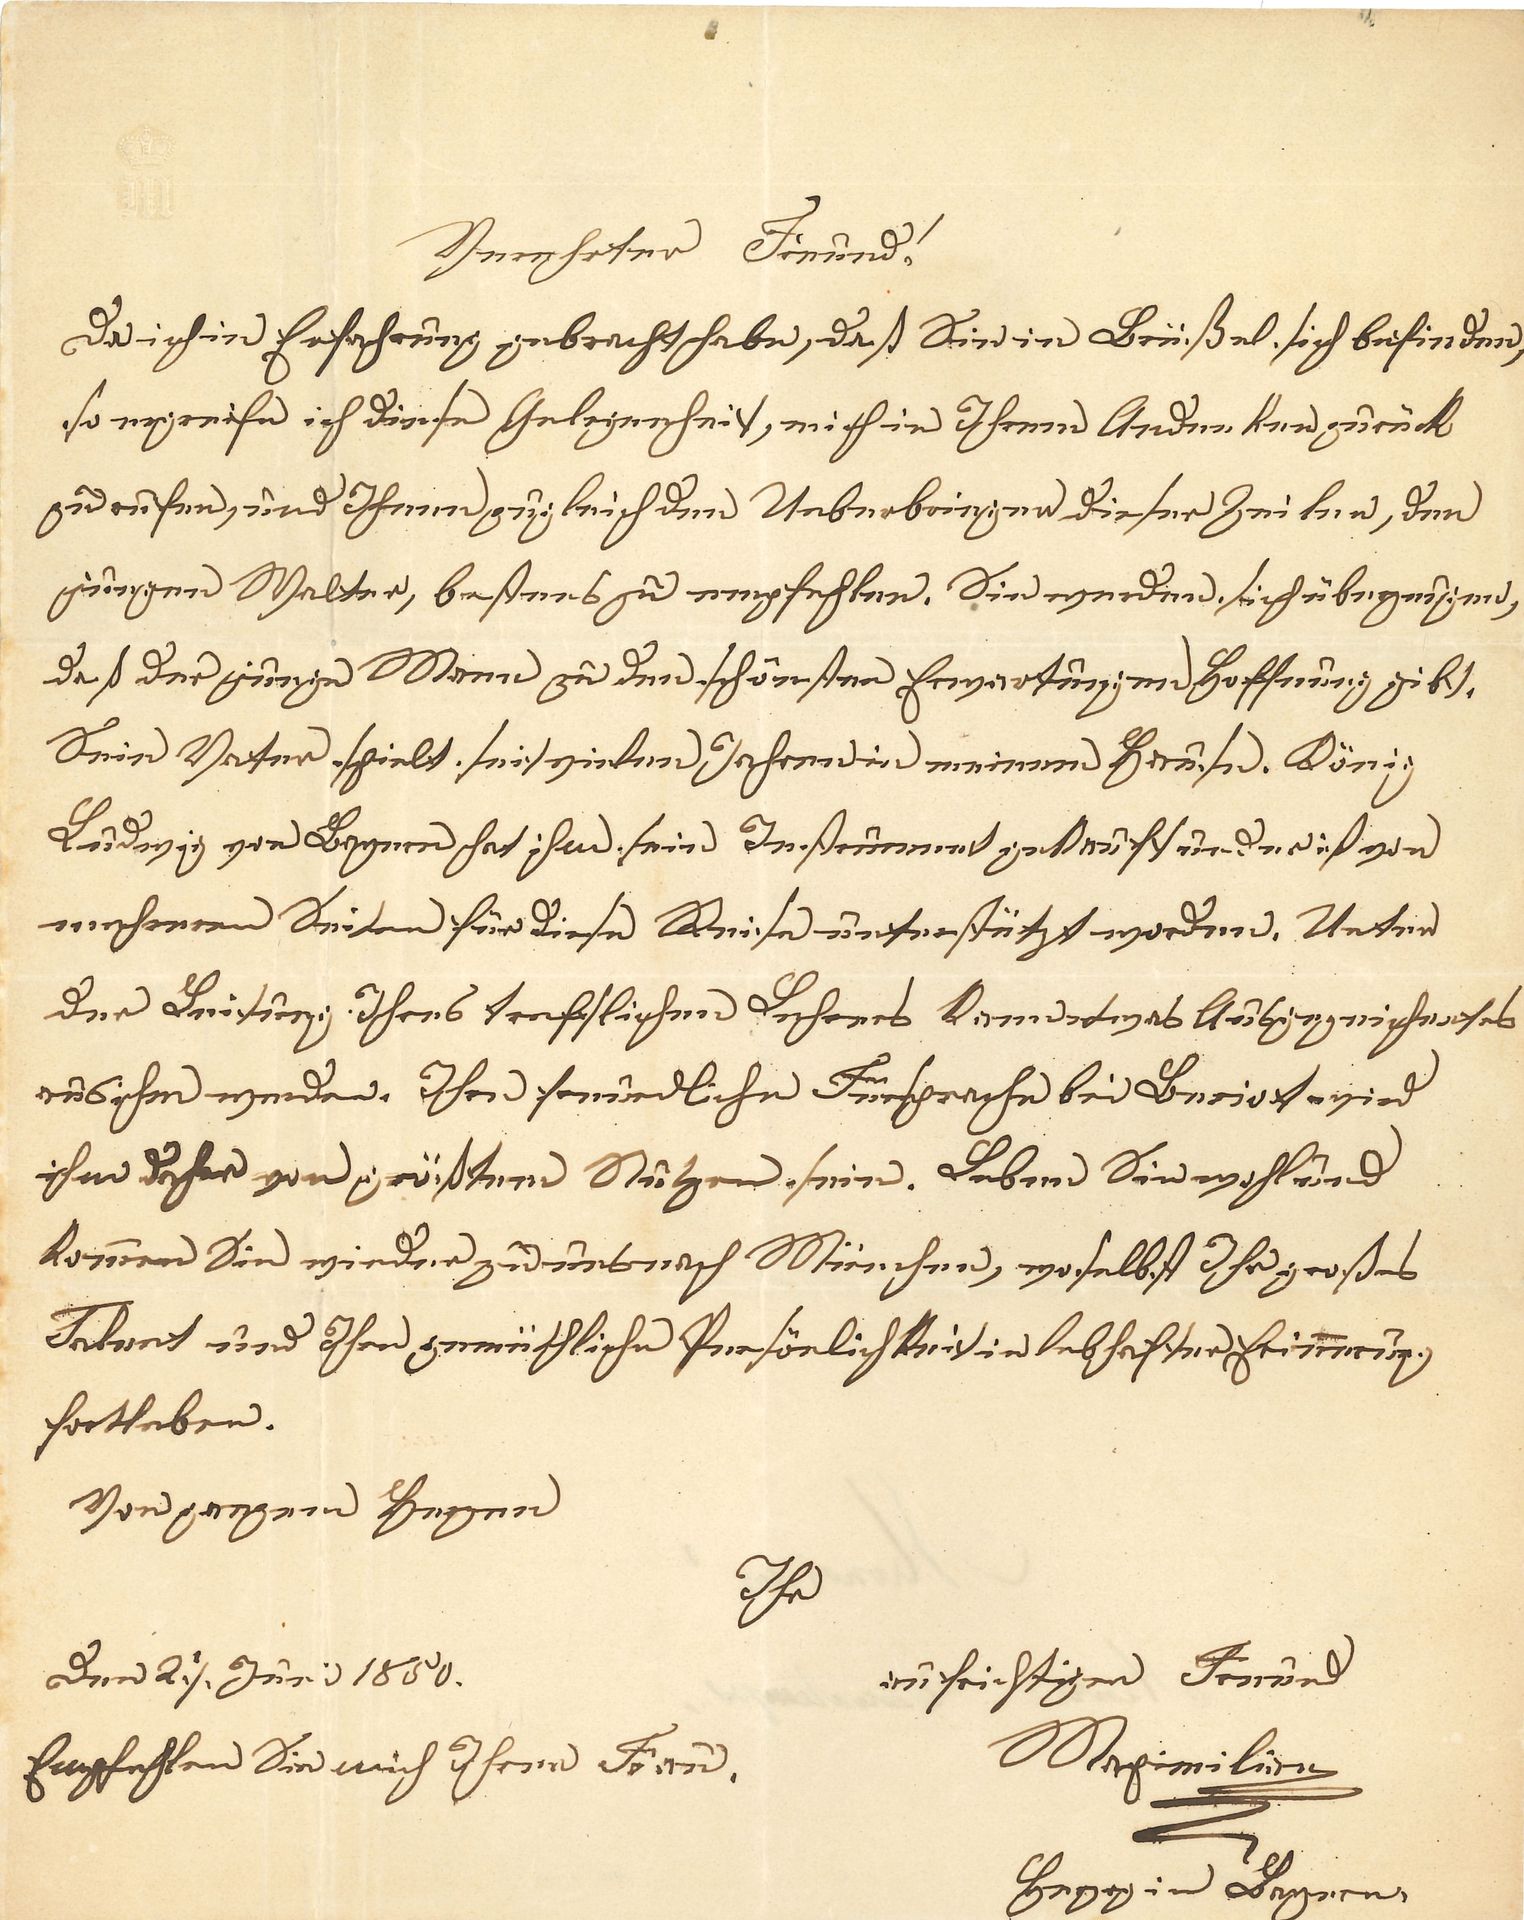 Verehrter Freund!
Da ich in Erfahrung gebracht habe, daß Sie in Brüßel sich befinden,
so ergreife ich diese Gelegenheit, mich in Ihrem Andenken zurück
zu rufen, und Ihnen zugleich den Ueberbringer dieser Zeilen, den
jungen Walter, beßtens zu empfehlen. Sie werden sich überzeugen,
daß der junge Mann zu den schönsten Erwartungen Hoffnung gibt.
Sein Vater spielt seit vielen Jahren in meinem Hause. König
Ludwig von Bayern hat ihm sein Instrument gekauft und er ist von
mehreren Seiten für diese Reise unterstützt worden. Unter
der Leitung Ihres trefflichen Lehrers kann etwas Ausgezeichnetes
aus ihm werden. Ihre freundliche Fürsprache bei Beriot wird
ihm daher von größtem Nutzen sein. Leben Sie wohl und
kom̅en Sie wieder zu uns nach München, woselbst Ihr großes
Talent und Ihre gemüthliche Persönlichkeit in lebhafter Erin̅erung
fortleben.
Von ganzem Herzen
Ihr
den Juni 1850. aufrichtiger Freund
Empfehlen Sie mich Ihrer Frau. Maximilian
Herzog in Bayern.